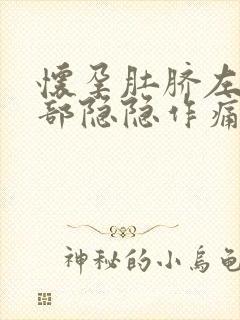 懷孕肚脐左
部隐隐作痛
神秘的小烏龟